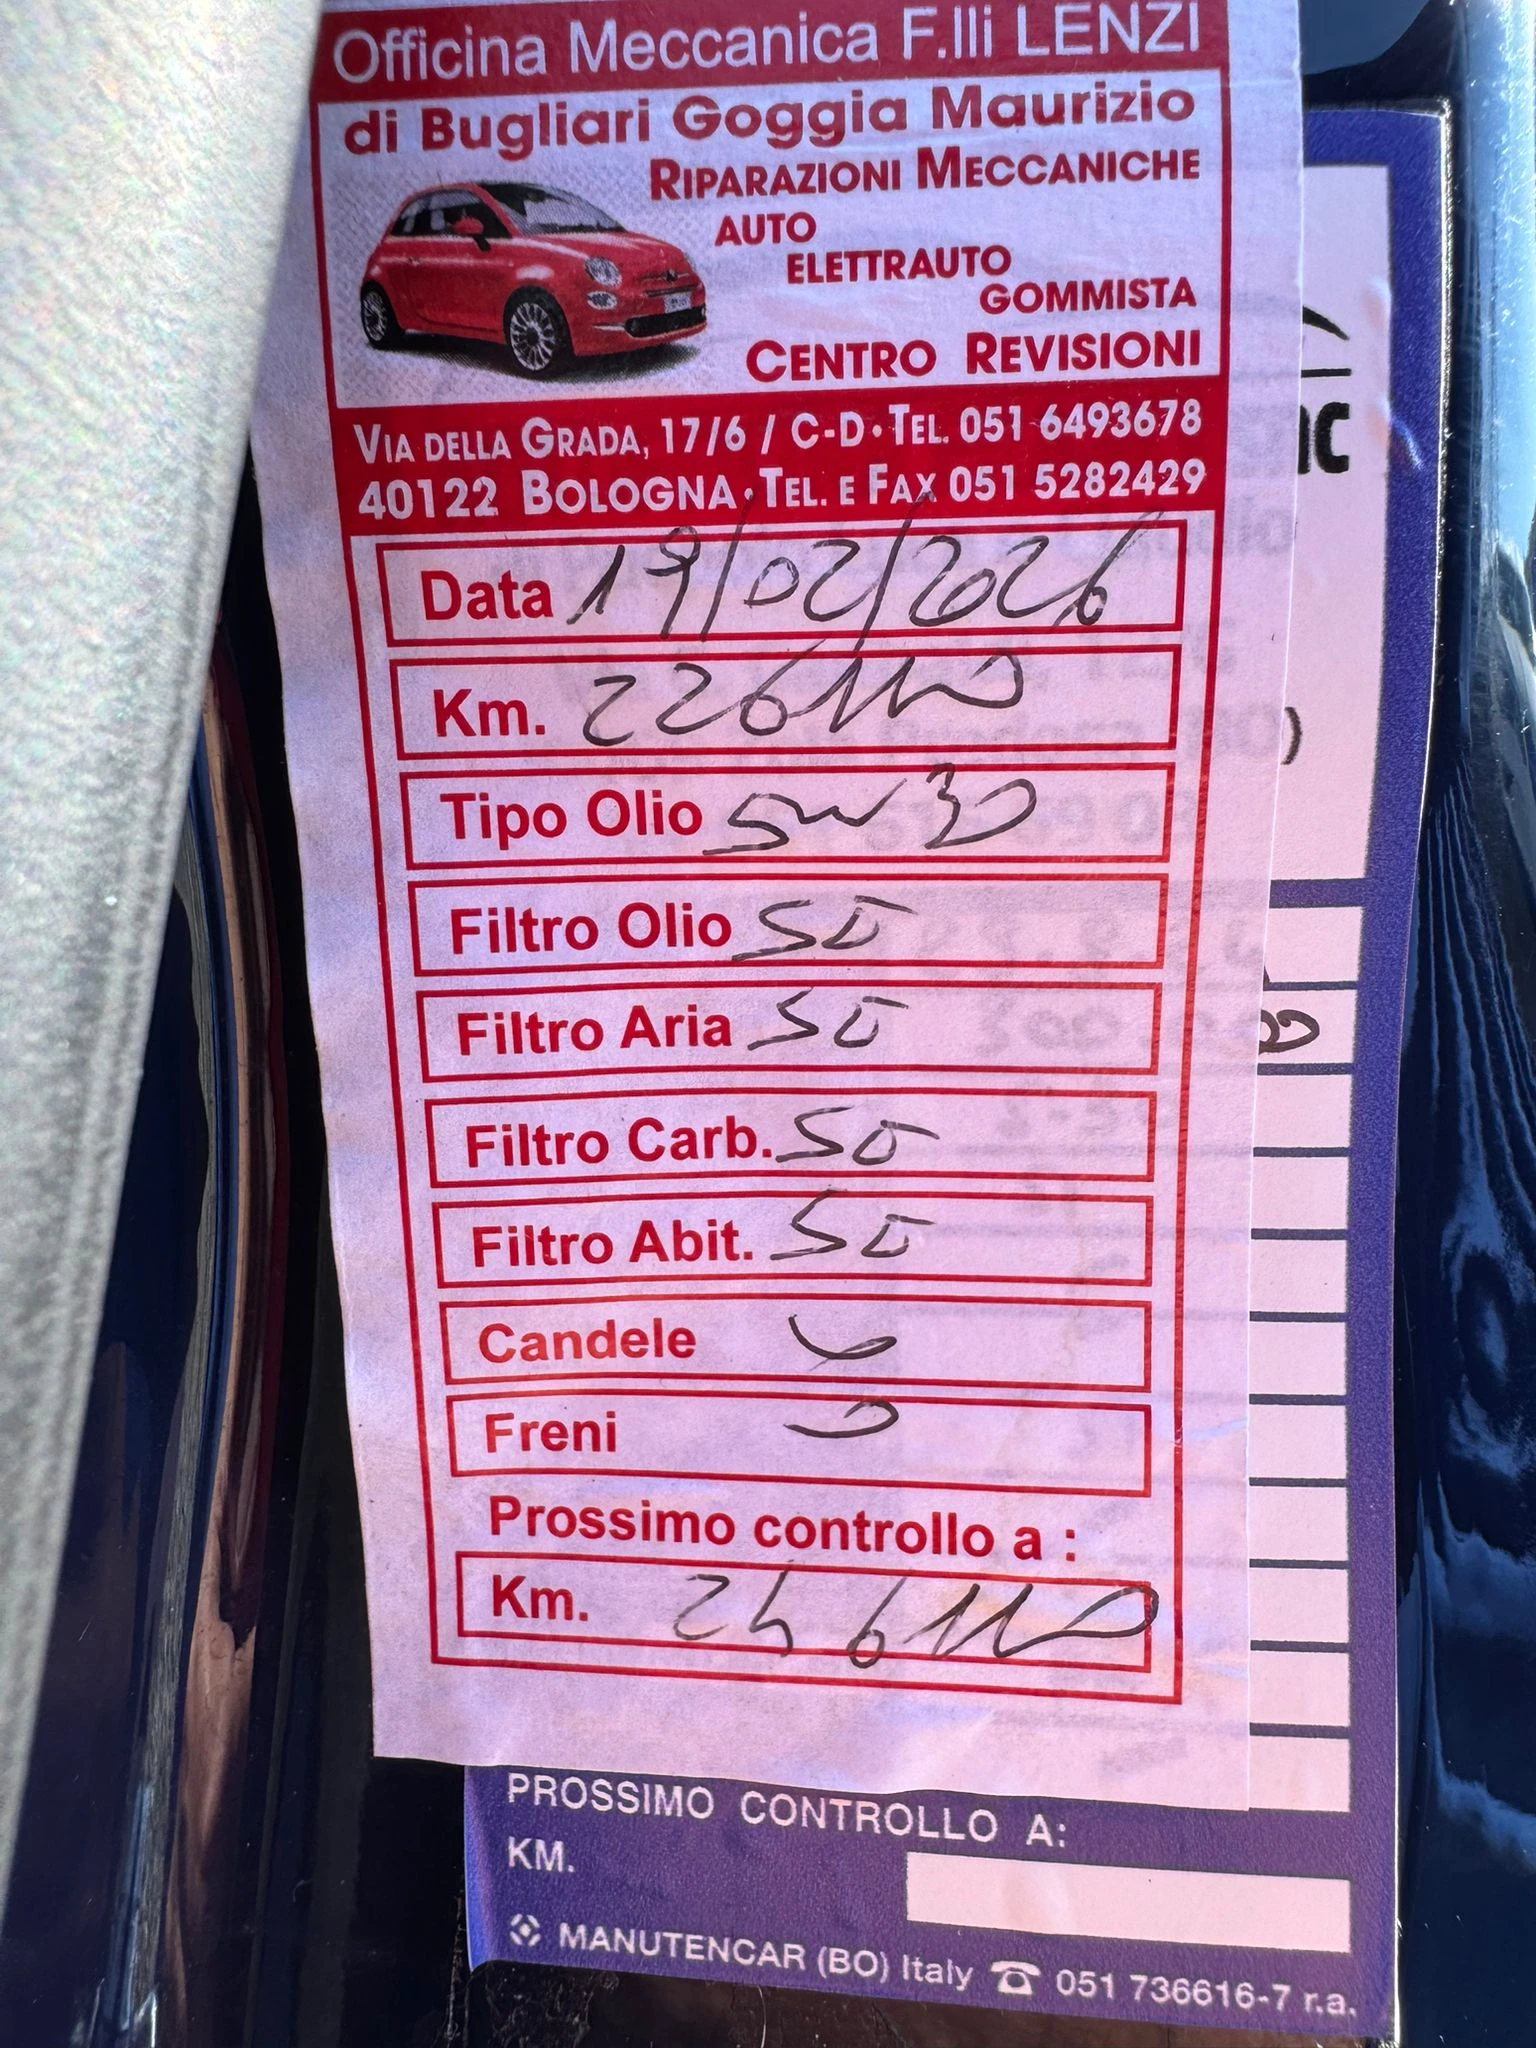 Officina Meccanica F.lli LENZI
di Bugliari Goggia Maurizio
RIPARAZIONI MECCANICHE
AUTO
ELETTRAUTO
GOMMISTA
CENTRO REVISIONI
VIA DELLA GRADA, 17/6 / C-D • TEL. 051 6493678
40122 BOLOGNA • TEL. E FAX 051 5282429
Data 19/02/2026
Km. 226110
Tipo Olio 5w30
Filtro Olio SI
Filtro Aria SI
Filtro Carb. SI
Filtro Abit. SI
Candele
Freni
Prossimo controllo a :
Km. 246110
PROSSIMO CONTROLLO A:
KM.
MANUTENCAR (BO) Italy ☎ 051 736616-7 r.a.